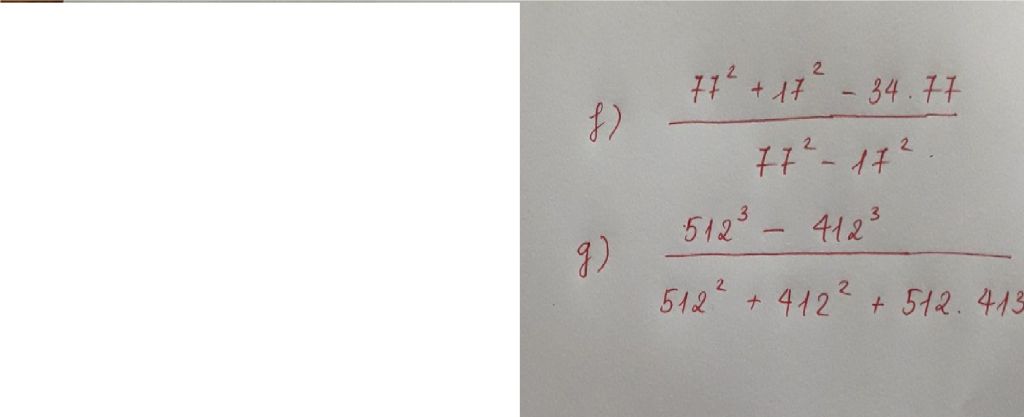 f) (77² + 17² - 34 . 77) / (77² - 17²)
g) (512³ - 412³) / (512² + 412² + 512 . 413)